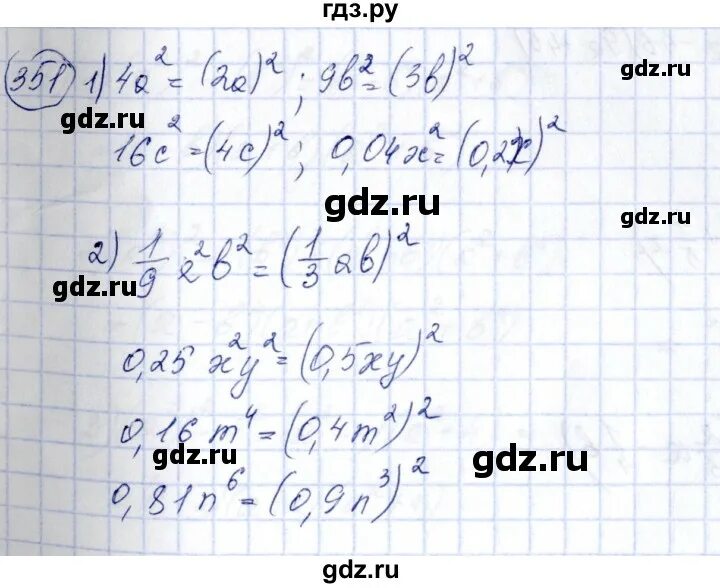 гдз.ру
351 1) 4a² = (2a)² ; 9b² = (3b)²
gdz.ru
gdz.ru
16c² = (4c)² ; 0,04x² = (0,2x)²
gdz.ru
gdz.ru
2) 1/9 a²b² = (1/3 ab)²
gdz.ru
0,25 x²y² = (0,5xy)²
0,16 m⁴ = (0,4m²)²
gdz.ru
gdz.ru
0,81n⁶ = (0,9n³)²
gdz.ru
gdz.ru